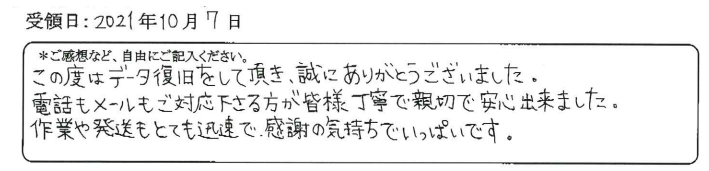 受領日:2021年10月7日
*ご感想など、自由にご記入ください。
この度はデータ復旧をして頂き、誠にありがとうございました。
電話もメールもご対応下さる方が皆様丁寧で親切で安心出来ました。
作業や発送もとても迅速で、感謝の気持ちでいっぱいです。